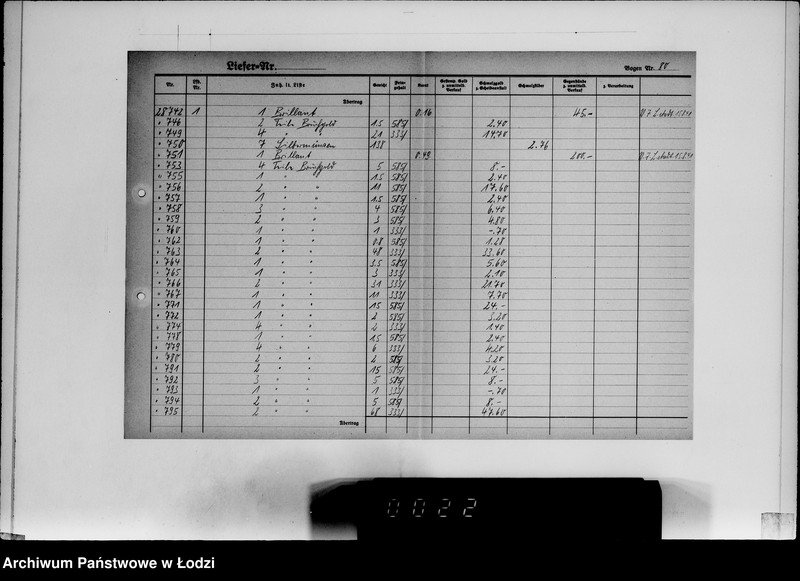 Liefer-Nr.
Bogen Nr. 80
Nr. Lfd. Nr. Inh. lt. Liste Gewicht Feingehalt Karat Gestemp. Gold z. unmittelb. Verkauf Schmelzgold z. Scheideanstalt Schmelzsilber Gegenstände z. unmittelb. Verkauf z. Verarbeitung
Übertrag
28742 1 1 Brillant 0.16 45.-
" 746 2 Teile Bruchgold 1.5 585/ 2.40
" 749 4 " 21 333/ 14.70
" 750 7 Silbermünzen 138 2.76
" 751 1 Brillant 0.49 200.-
" 753 4 Teile Bruchgold 5 585/ 8.-
" 755 1 " " 1.5 585/ 2.40
" 756 2 " " 11 585/ 17.60
" 757 1 " " 1.5 585/ 2.40
" 758 3 " " 4 585/ 6.40
" 759 2 " " 3 585/ 4.80
" 760 1 " " 1 333/ -.70
" 762 1 " " 0.8 585/ 1.28
" 763 2 " " 48 333/ 33.60
" 764 1 " " 3.5 585/ 5.60
" 765 1 " " 3 333/ 2.10
" 766 2 " " 31 333/ 21.70
" 767 1 " " 11 333/ 7.70
" 771 1 " " 15 585/ 24.-
" 772 1 " " 2 585/ 3.20
" 774 4 " " 2 333/ 1.40
" 778 1 " " 1.5 585/ 2.40
" 779 4 " " 6 333/ 4.20
" 780 2 " " 2 585/ 3.20
" 791 2 " " 15 585/ 24.-
" 792 3 " " 5 585/ 8.-
" 793 1 " " 1 333/ -.70
" 794 2 " " 5 585/ 8.-
" 795 2 " " 68 333/ 47.60
Übertrag
0022
Archiwum Państwowe w Łodzi